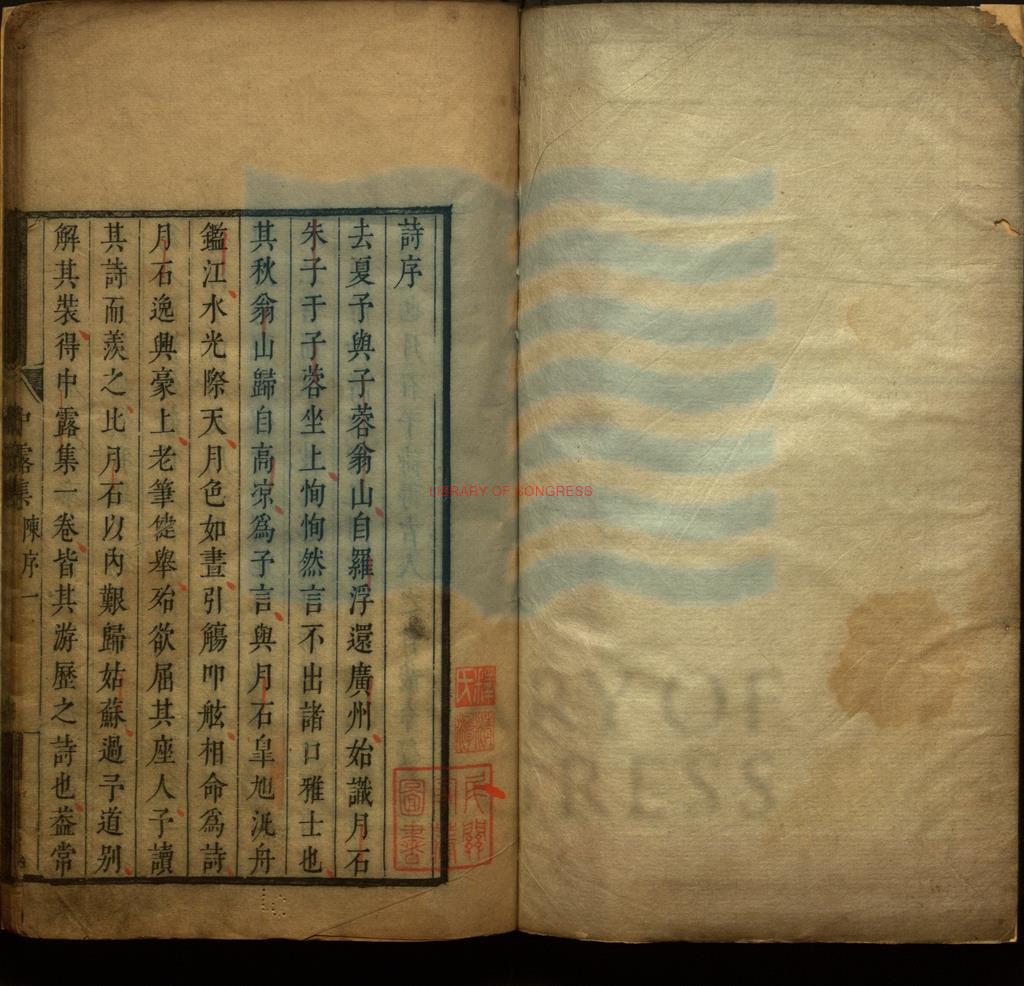 詩序
去夏予與子蓉翁山自羅浮還廣州始識月石
朱子于子蓉坐上恂恂然言不出諸口雅士也
其秋翁山歸自高凉爲予言與月石皐旭泛舟
鑑江水光際天月色如晝引觴叩舷相命爲詩
月石逸興豪上老筆健舉殆欲屈其座人予讀
其詩而羨之比月石以內艱歸姑蘇過予道别
解其裝得中露集一卷皆其游歷之詩也葢常
中露集 陳序 一
LIBRARY OF CONGRESS